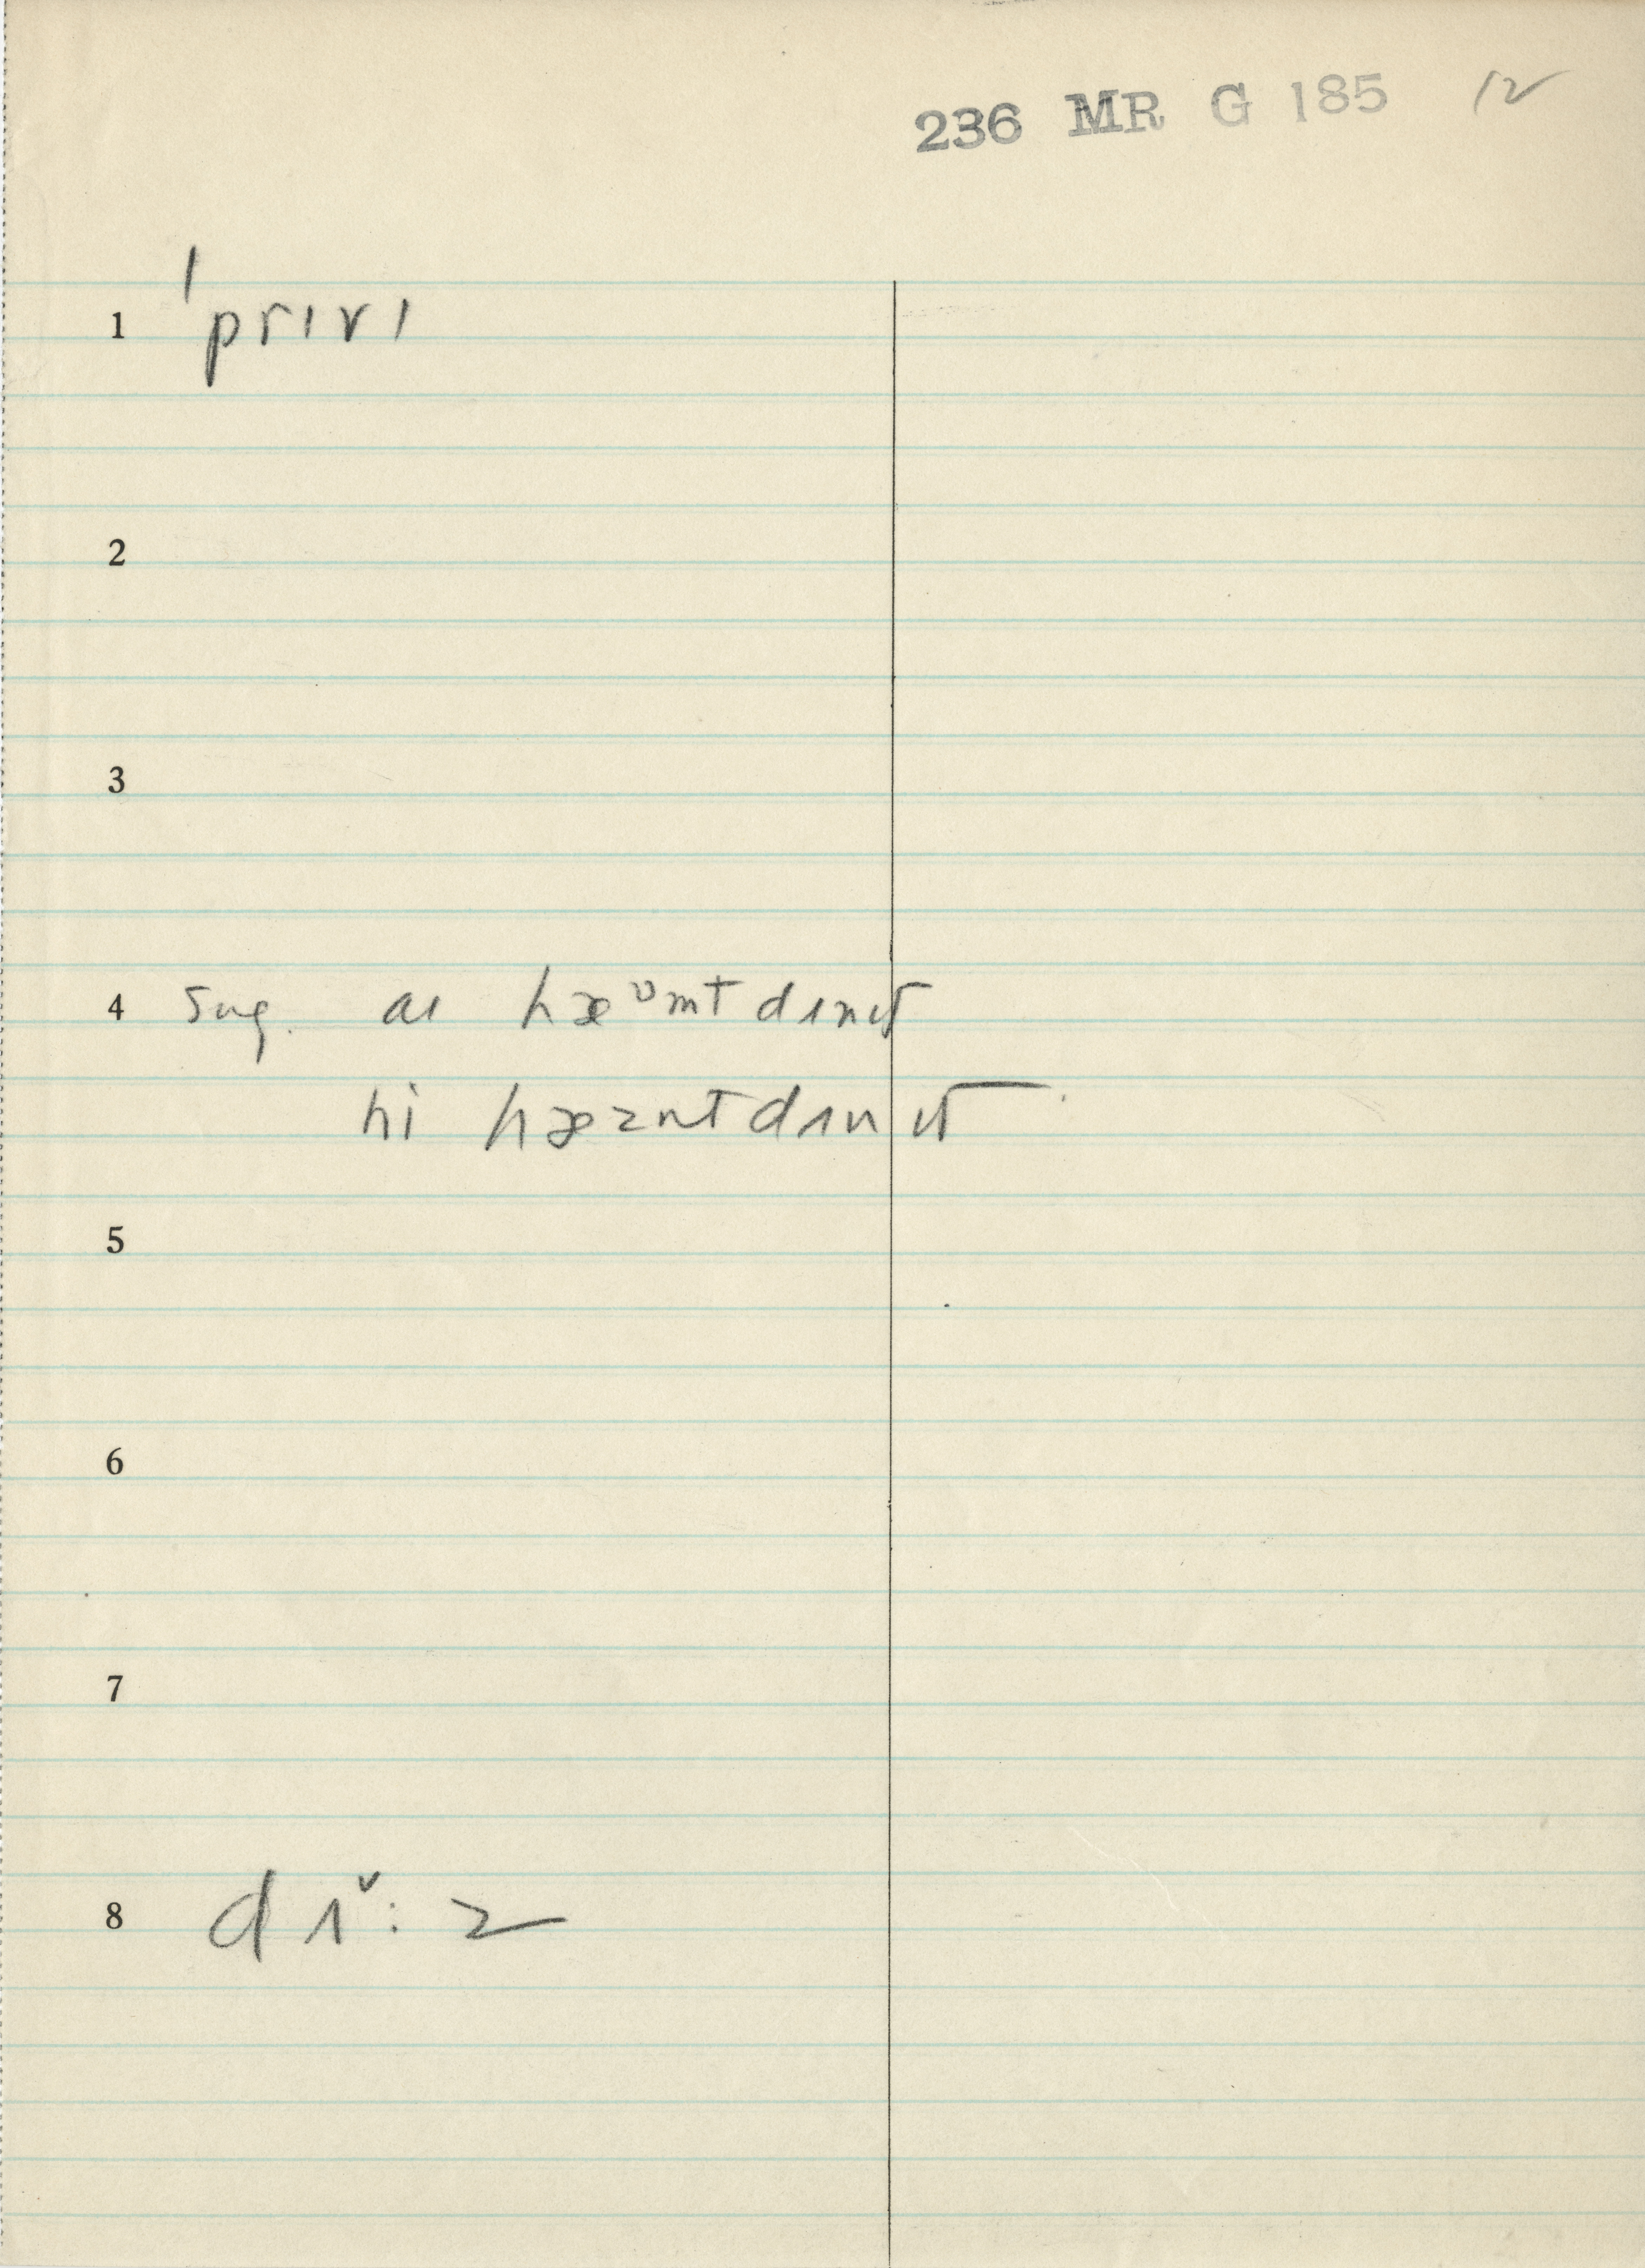 236 MR G 185 12
1 ˈprɪvɪ
2
3
4 sug. aɪ hæᶷmt dɪnɪt
hi hæznt dɪn ɪt
5
6
7
8 dɪˇ: z